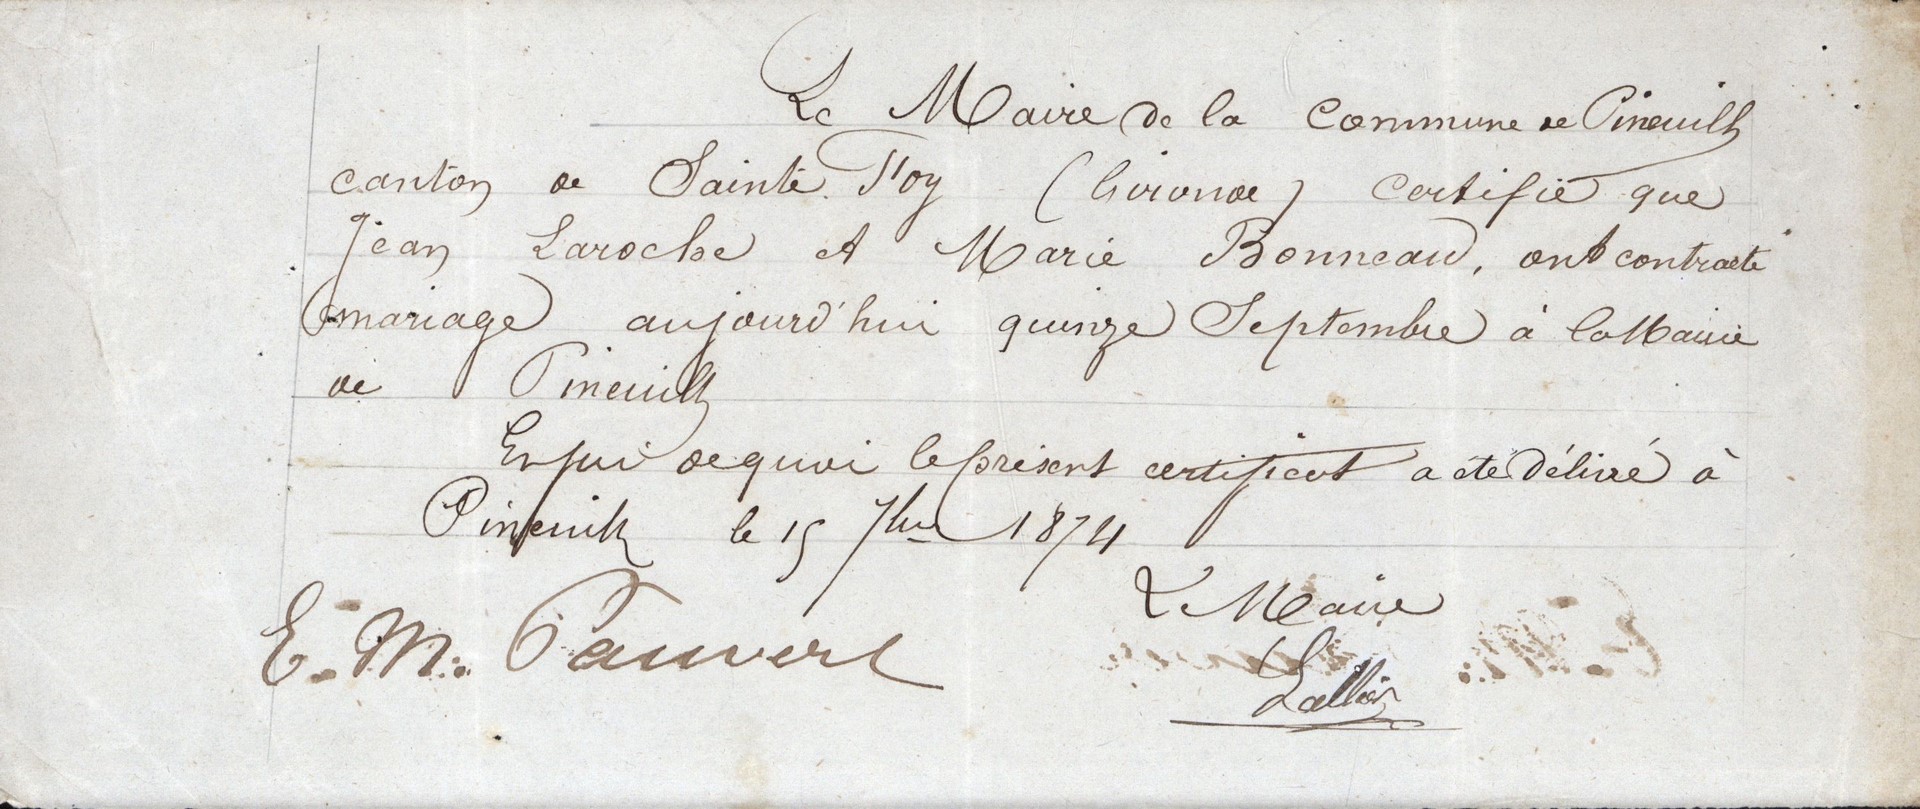 Le Maire de la Commune de Pineuilh
canton de Sainte Foy (Gironde) certifie que
Jean Laroche et Marie Bonneau, ont contracté
mariage aujourd'hui quinze Septembre à la Mairie
de Pineuilh
En foi de quoi le présent certificat a été délivré à
Pineuilh le 15 7bre 1874
Le Maire
E. M. Pauvert